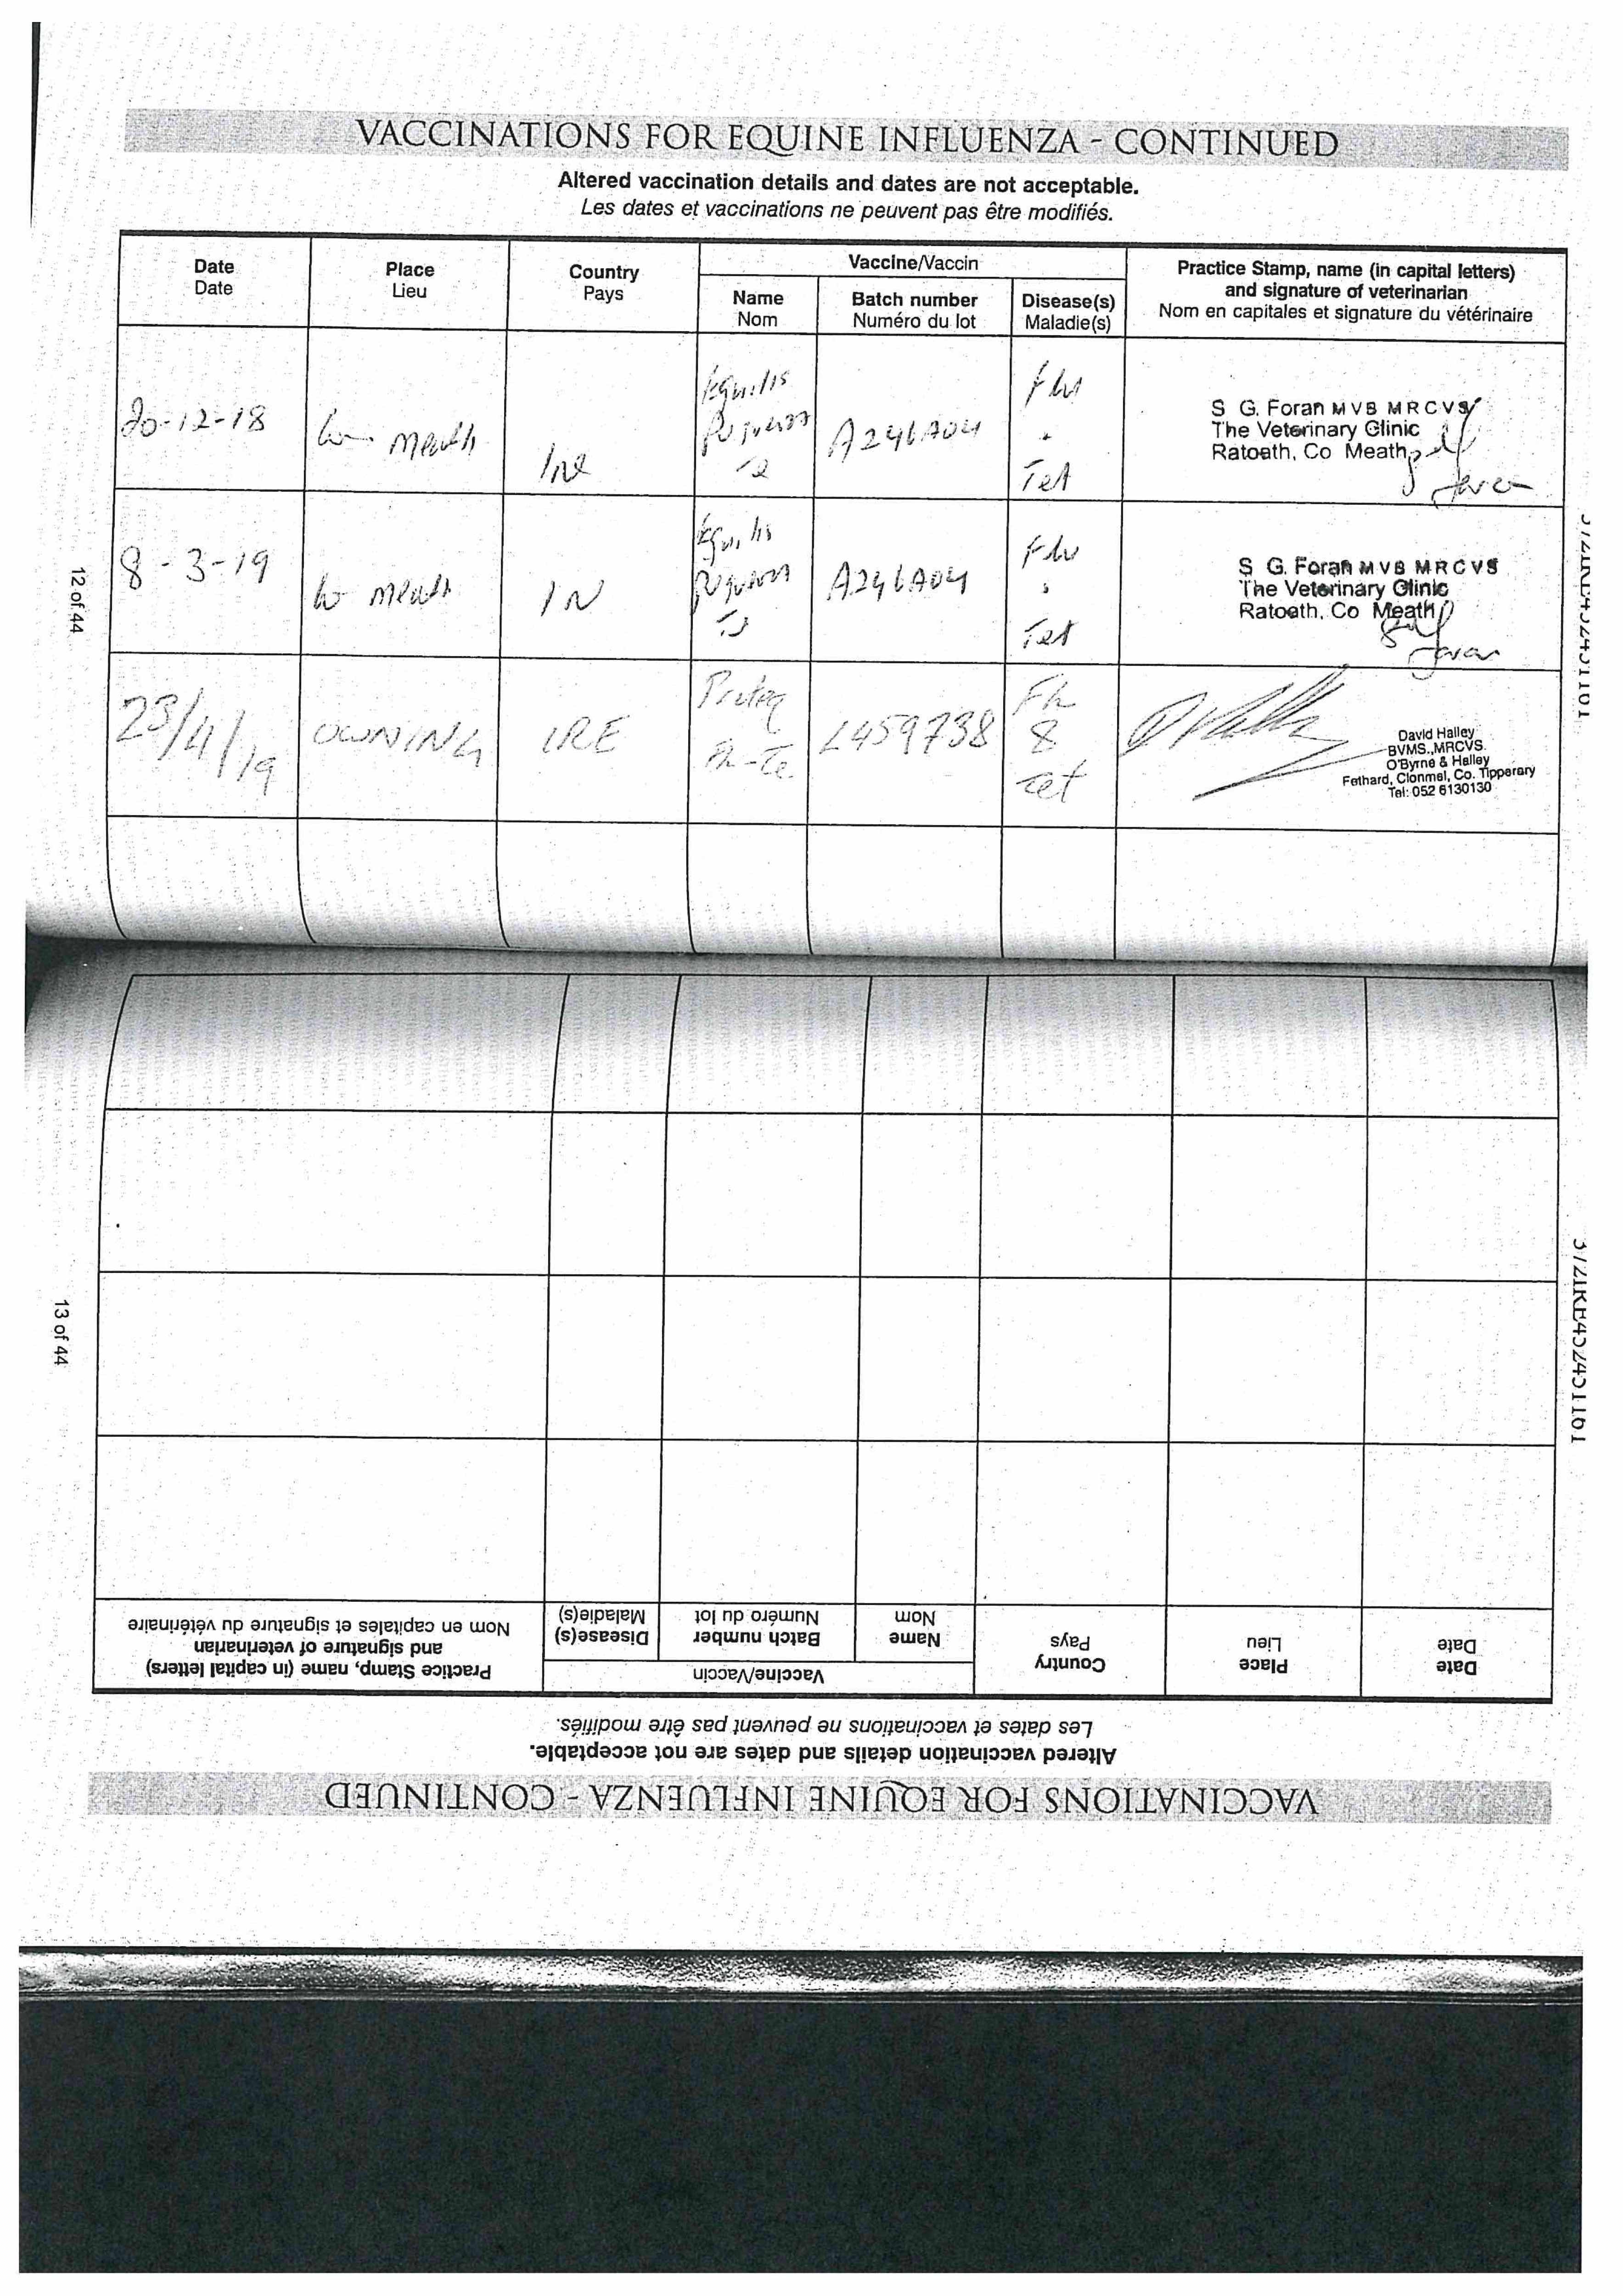 VACCINATIONS FOR EQUINE INFLUENZA - CONTINUED
Altered vaccination details and dates are not acceptable.
Les dates et vaccinations ne peuvent pas être modifiés.
Date Place Country Vaccine/Vaccin Practice Stamp, name (in capital letters)
Date Lieu Pays Name Batch number Disease(s) and signature of veterinarian
Nom Numéro du lot Maladie(s) Nom en capitales et signature du vétérinaire
20-12-18 Co Meath Ire Equilis A246A04 Flu
Te Tet
S G. Foran MVB MRCVS
The Veterinary Clinic
Ratoath, Co Meath
8-3-19 Co Meath Equilis A246A04 Flu
Te Tet
S G. Foran MVB MRCVS
The Veterinary Clinic
Ratoath, Co Meath
23/4/19 OWNING IRE Proteq L459738 Flu
Flu-Te & Tet
David Halley
BVMS.,MRCVS.
O'Byrne & Halley
Fethard, Clonmel, Co. Tipperary
Tel: 052 6130130
12 of 44
13 of 44
VACCINATIONS FOR EQUINE INFLUENZA - CONTINUED
Altered vaccination details and dates are not acceptable.
Les dates et vaccinations ne peuvent pas être modifiés.
Date Place Country Vaccine/Vaccin Practice Stamp, name (in capital letters)
Date Lieu Pays Name Batch number Disease(s) and signature of veterinarian
Nom Numéro du lot Maladie(s) Nom en capitales et signature du vétérinaire